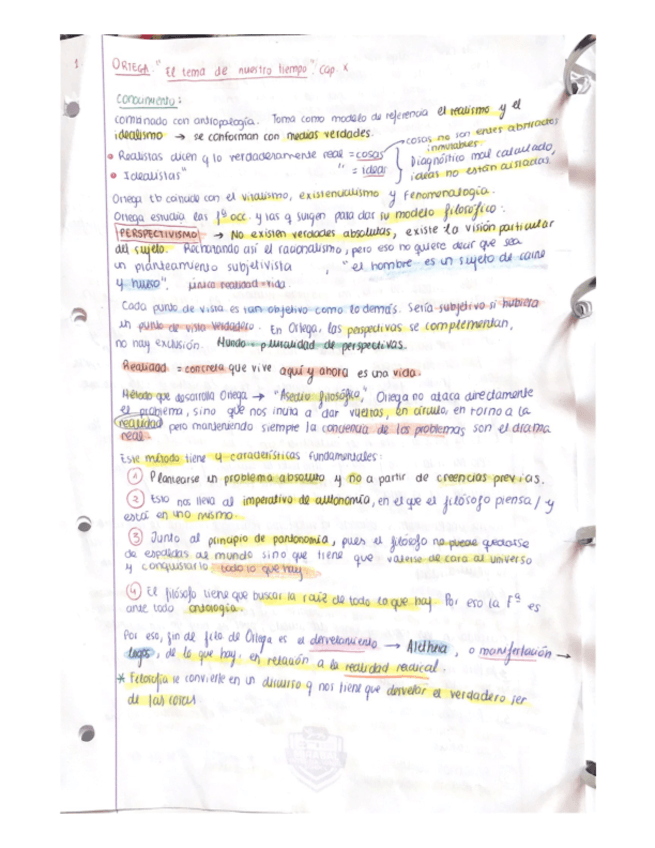 1
ORTEGA. "El tema de nuestro tiempo". Cap. X
Conocimiento:
combinado con antropología. Toma como modelo de referencia el realismo y el
idealismo → se conforman con medias verdades.
• Realistas dicen q lo verdaderamente real = cosas
• Idealistas " " = ideas
cosas no son entes abstractos
inmutables
Diagnóstico mal calculado,
ideas no están aisladas.
Ortega tb coincide con el vitalismo, existencialismo y fenomenología.
Ortega estudia las fª occ. y las q surgen para dar su modelo filosófico:
PERSPECTIVISMO → No existen verdades absolutas, existe la visión particular
del sujeto. Rechazando así el racionalismo, pero eso no quiere decir que sea
un planteamiento subjetivista, "el hombre es un sujeto de carne
y hueso". única realidad = vida.
Cada punto de vista es tan objetivo como lo demás. Sería subjetivo si hubiera
un punto de vista verdadero. En Ortega, las perspectivas se complementan,
no hay exclusión. Mundo = pluralidad de perspectivas.
Realidad = concreta que vive aquí y ahora es una vida.
Método que desarrolla Ortega → "Asedio filosófico," Ortega no ataca directamente
el problema, sino que nos invita a dar vueltas, en círculo, en torno a la
realidad pero manteniendo siempre la conciencia de los problemas son el drama
real.
Este método tiene 4 características fundamentales:
① Plantearse un problema absoluto y no a partir de creencias previas.
② Esto nos lleva al imperativo de autonomía, en el que el filósofo piensa/y
está en uno mismo.
③ Junto al principio de pantonomía, pues el filósofo no puede quedarse
de espaldas al mundo sino que tiene que valerse de cara al universo
y conquistarlo todo lo que hay.
④ El filósofo tiene que buscar la raíz de todo lo que hay. Por eso la Fª es
ante todo ontología.
Por eso, fin de filo de Ortega es el desvelamiento → Aletheia, o manifestación →
logos, de lo que hay, en relación a la realidad radical.
* Filosofía se convierte en un discurso q nos tiene que desvelar el verdadero ser
de las cosas